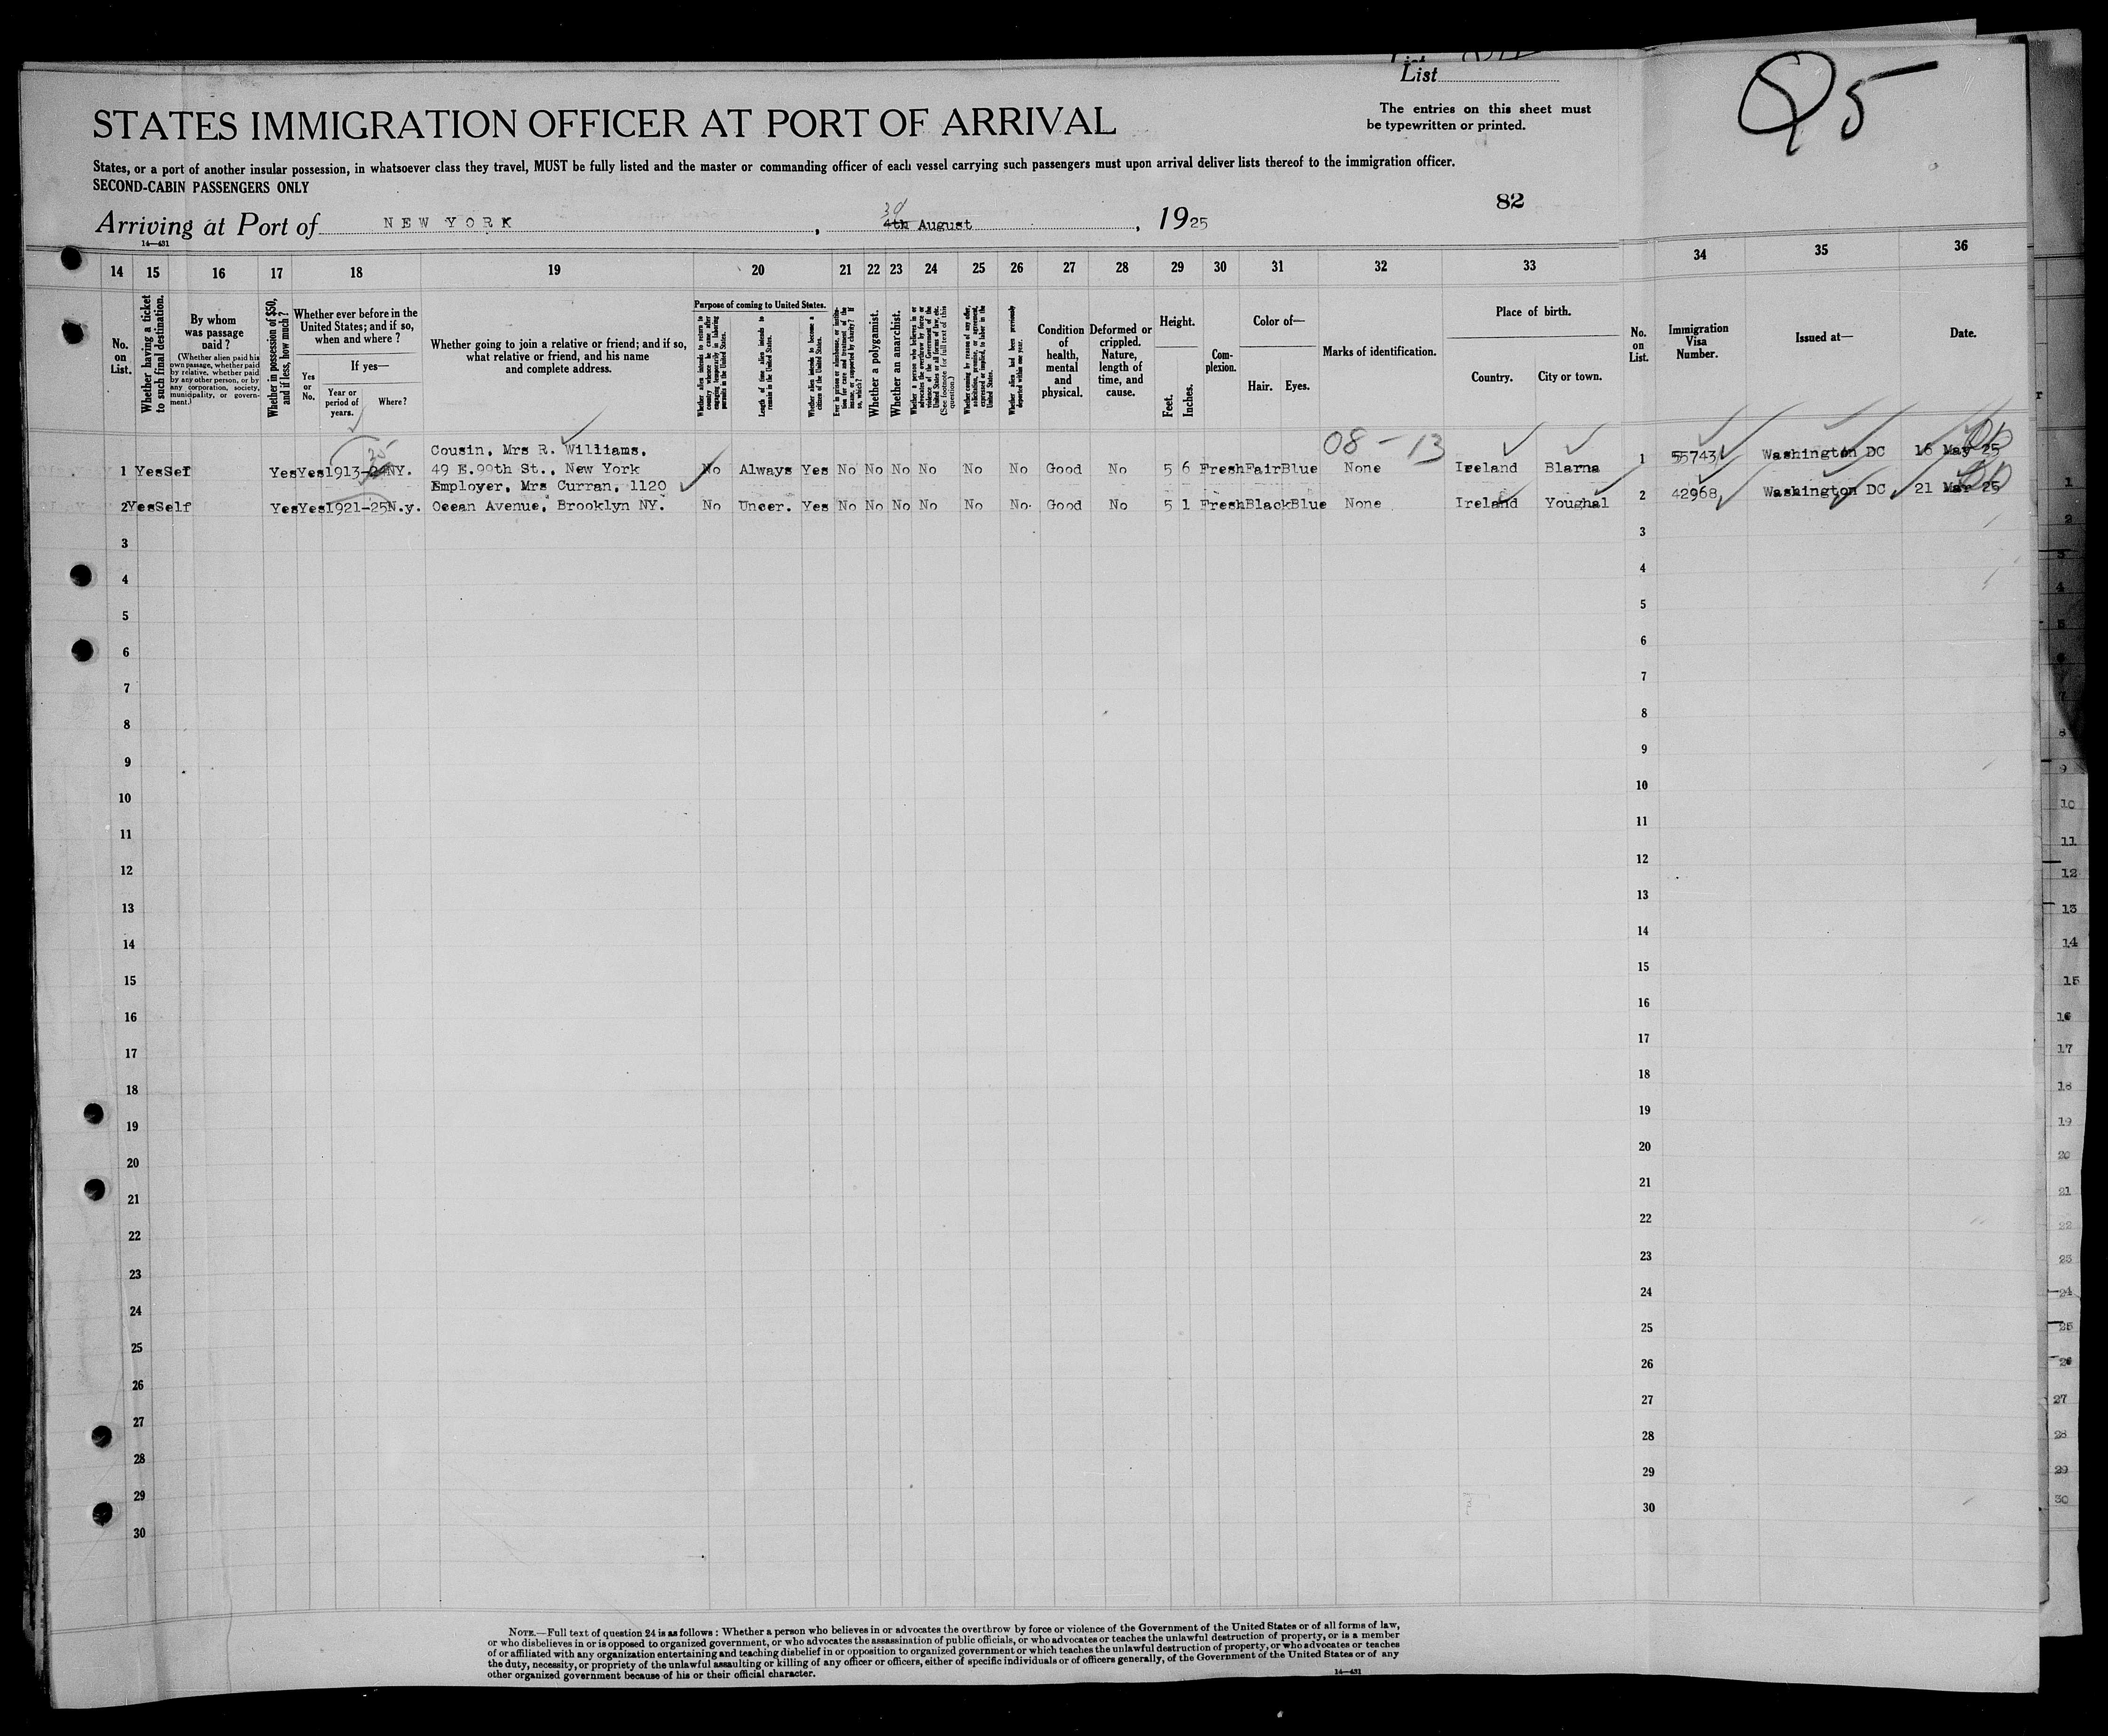 List
STATES IMMIGRATION OFFICER AT PORT OF ARRIVAL
The entries on this sheet must
be typewritten or printed.
95
States, or a port of another insular possession, in whatsoever class they travel, MUST be fully listed and the master or commanding officer of each vessel carrying such passengers must upon arrival deliver lists thereof to the immigration officer.
SECOND-CABIN PASSENGERS ONLY
82
Arriving at Port of NEW YORK, 3d 4th August, 1925
14—431
14 15 16 17 18 19 20 21 22 23 24 25 26 27 28 29 30 31 32 33 34 35 36
No. on List.
Whether having a ticket to such final destination.
By whom was passage paid?
(Whether alien paid his own passage, whether paid by relative, whether paid by any other person, or by any corporation, society, municipality, or government.)
Whether in possession of $50, and if less, how much?
Whether ever before in the United States; and if so, when and where?
Yes or No.
If yes—
Year or period of years.
Where?
Whether going to join a relative or friend; and if so, what relative or friend, and his name and complete address.
Purpose of coming to United States.
Whether alien intends to return to country whence he came after engaging temporarily in laboring pursuits in the United States.
Length of time alien intends to remain in the United States.
Whether alien intends to become a citizen of the United States.
Ever in prison or almshouse, or institution for care and treatment of the insane, or supported by charity? If so, which?
Whether a polygamist.
Whether an anarchist.
Whether a person who believes in or advocates the overthrow by force or violence of the Government of the United States or all forms of law, etc. (See footnote for full text of this question.)
Whether coming by reason of any offer, solicitation, promise, or agreement, expressed or implied, to labor in the United States.
Whether alien had been previously deported within one year.
Condition of health, mental and physical.
Deformed or crippled. Nature, length of time, and cause.
Height.
Feet. Inches.
Complexion.
Color of—
Hair. Eyes.
Marks of identification.
Place of birth.
Country. City or town.
No. on List.
Immigration Visa Number.
Issued at—
Date.
08 - 13
25
Cousin, Mrs R. Williams,
1 Yes Sef Yes Yes 1913-24 NY. 49 E.99th St., New York No Always Yes No No No No No No Good No 5 6 Fresh Fair Blue None Ireland Blarna 1 55743 Washington DC 16 May 25
Employer, Mrs Curran, 1120
2 Yes Self Yes Yes 1921-25 N.y. Ocean Avenue, Brooklyn NY. No Uncer. Yes No No No No No No. Good No 5 1 Fresh Black Blue None Ireland Youghal 2 42968 Washington DC 21 Mar 25
3 3
4 4
5 5
6 6
7 7
8 8
9 9
10 10
11 11
12 12
13 13
14 14
15 15
16 16
17 17
18 18
19 19
20 20
21 21
22 22
23 23
24 24
25 25
26 26
27 27
28 28
29 29
30 30
NOTE.—Full text of question 24 is as follows: Whether a person who believes in or advocates the overthrow by force or violence of the Government of the United States or of all forms of law,
or who disbelieves in or is opposed to organized government, or who advocates the assassination of public officials, or who advocates or teaches the unlawful destruction of property, or is a member
of or affiliated with any organization entertaining and teaching disbelief in or opposition to organized government or which teaches the unlawful destruction of property, or who advocates or teaches
the duty, necessity, or propriety of the unlawful assaulting or killing of any officer or officers, either of specific individuals or of officers generally, of the Government of the United States or of any
other organized government because of his or their official character.
14—431